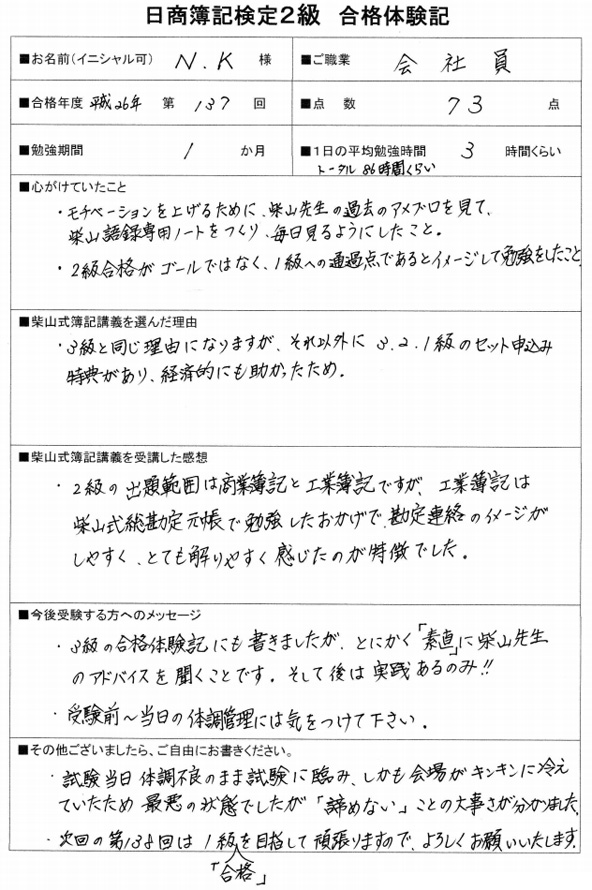 日商簿記検定２級 合格体験記
■お名前(イニシャル可) N.K 様 ■ご職業 会社員
■合格年度 平成26年 第 137 回 ■点 数 73 点
■勉強期間 1 か月 ■１日の平均勉強時間 3 時間くらい
トータル 86時間くらい
■心がけていたこと
・モチベーションを上げるために、柴山先生の過去のアメブロを見て、
柴山語録専用ノートをつくり、毎日見るようにしたこと。
・2級合格がゴールではなく、1級への通過点であるとイメージして勉強をしたこと。
■柴山式簿記講義を選んだ理由
・3級と同じ理由になりますが、それ以外に 3.2.1級のセット申込み
特典があり、経済的にも助かったため。
■柴山式簿記講義を受講した感想
・2級の出題範囲は商業簿記と工業簿記ですが、工業簿記は
柴山式総勘定元帳で勉強したおかげで、勘定連絡のイメージが
しやすく、とても解りやすく感じたのが特徴でした。
■今後受験する方へのメッセージ
・3級の合格体験記にも書きましたが、とにかく「素直」に柴山先生
のアドバイスを聞くことです。そして後は実践あるのみ!!
・受験前～当日の体調管理には気をつけて下さい。
■その他ございましたら、ご自由にお書きください。
・試験当日 体調不良のまま試験に臨み、しかも会場がキンキンに冷え
ていたため 最悪の状態でしたが「諦めない」ことの大事さが分かりました。
・次回の第138回は 1級を目指して頑張りますので、よろしくお願いいたします。
「合格」